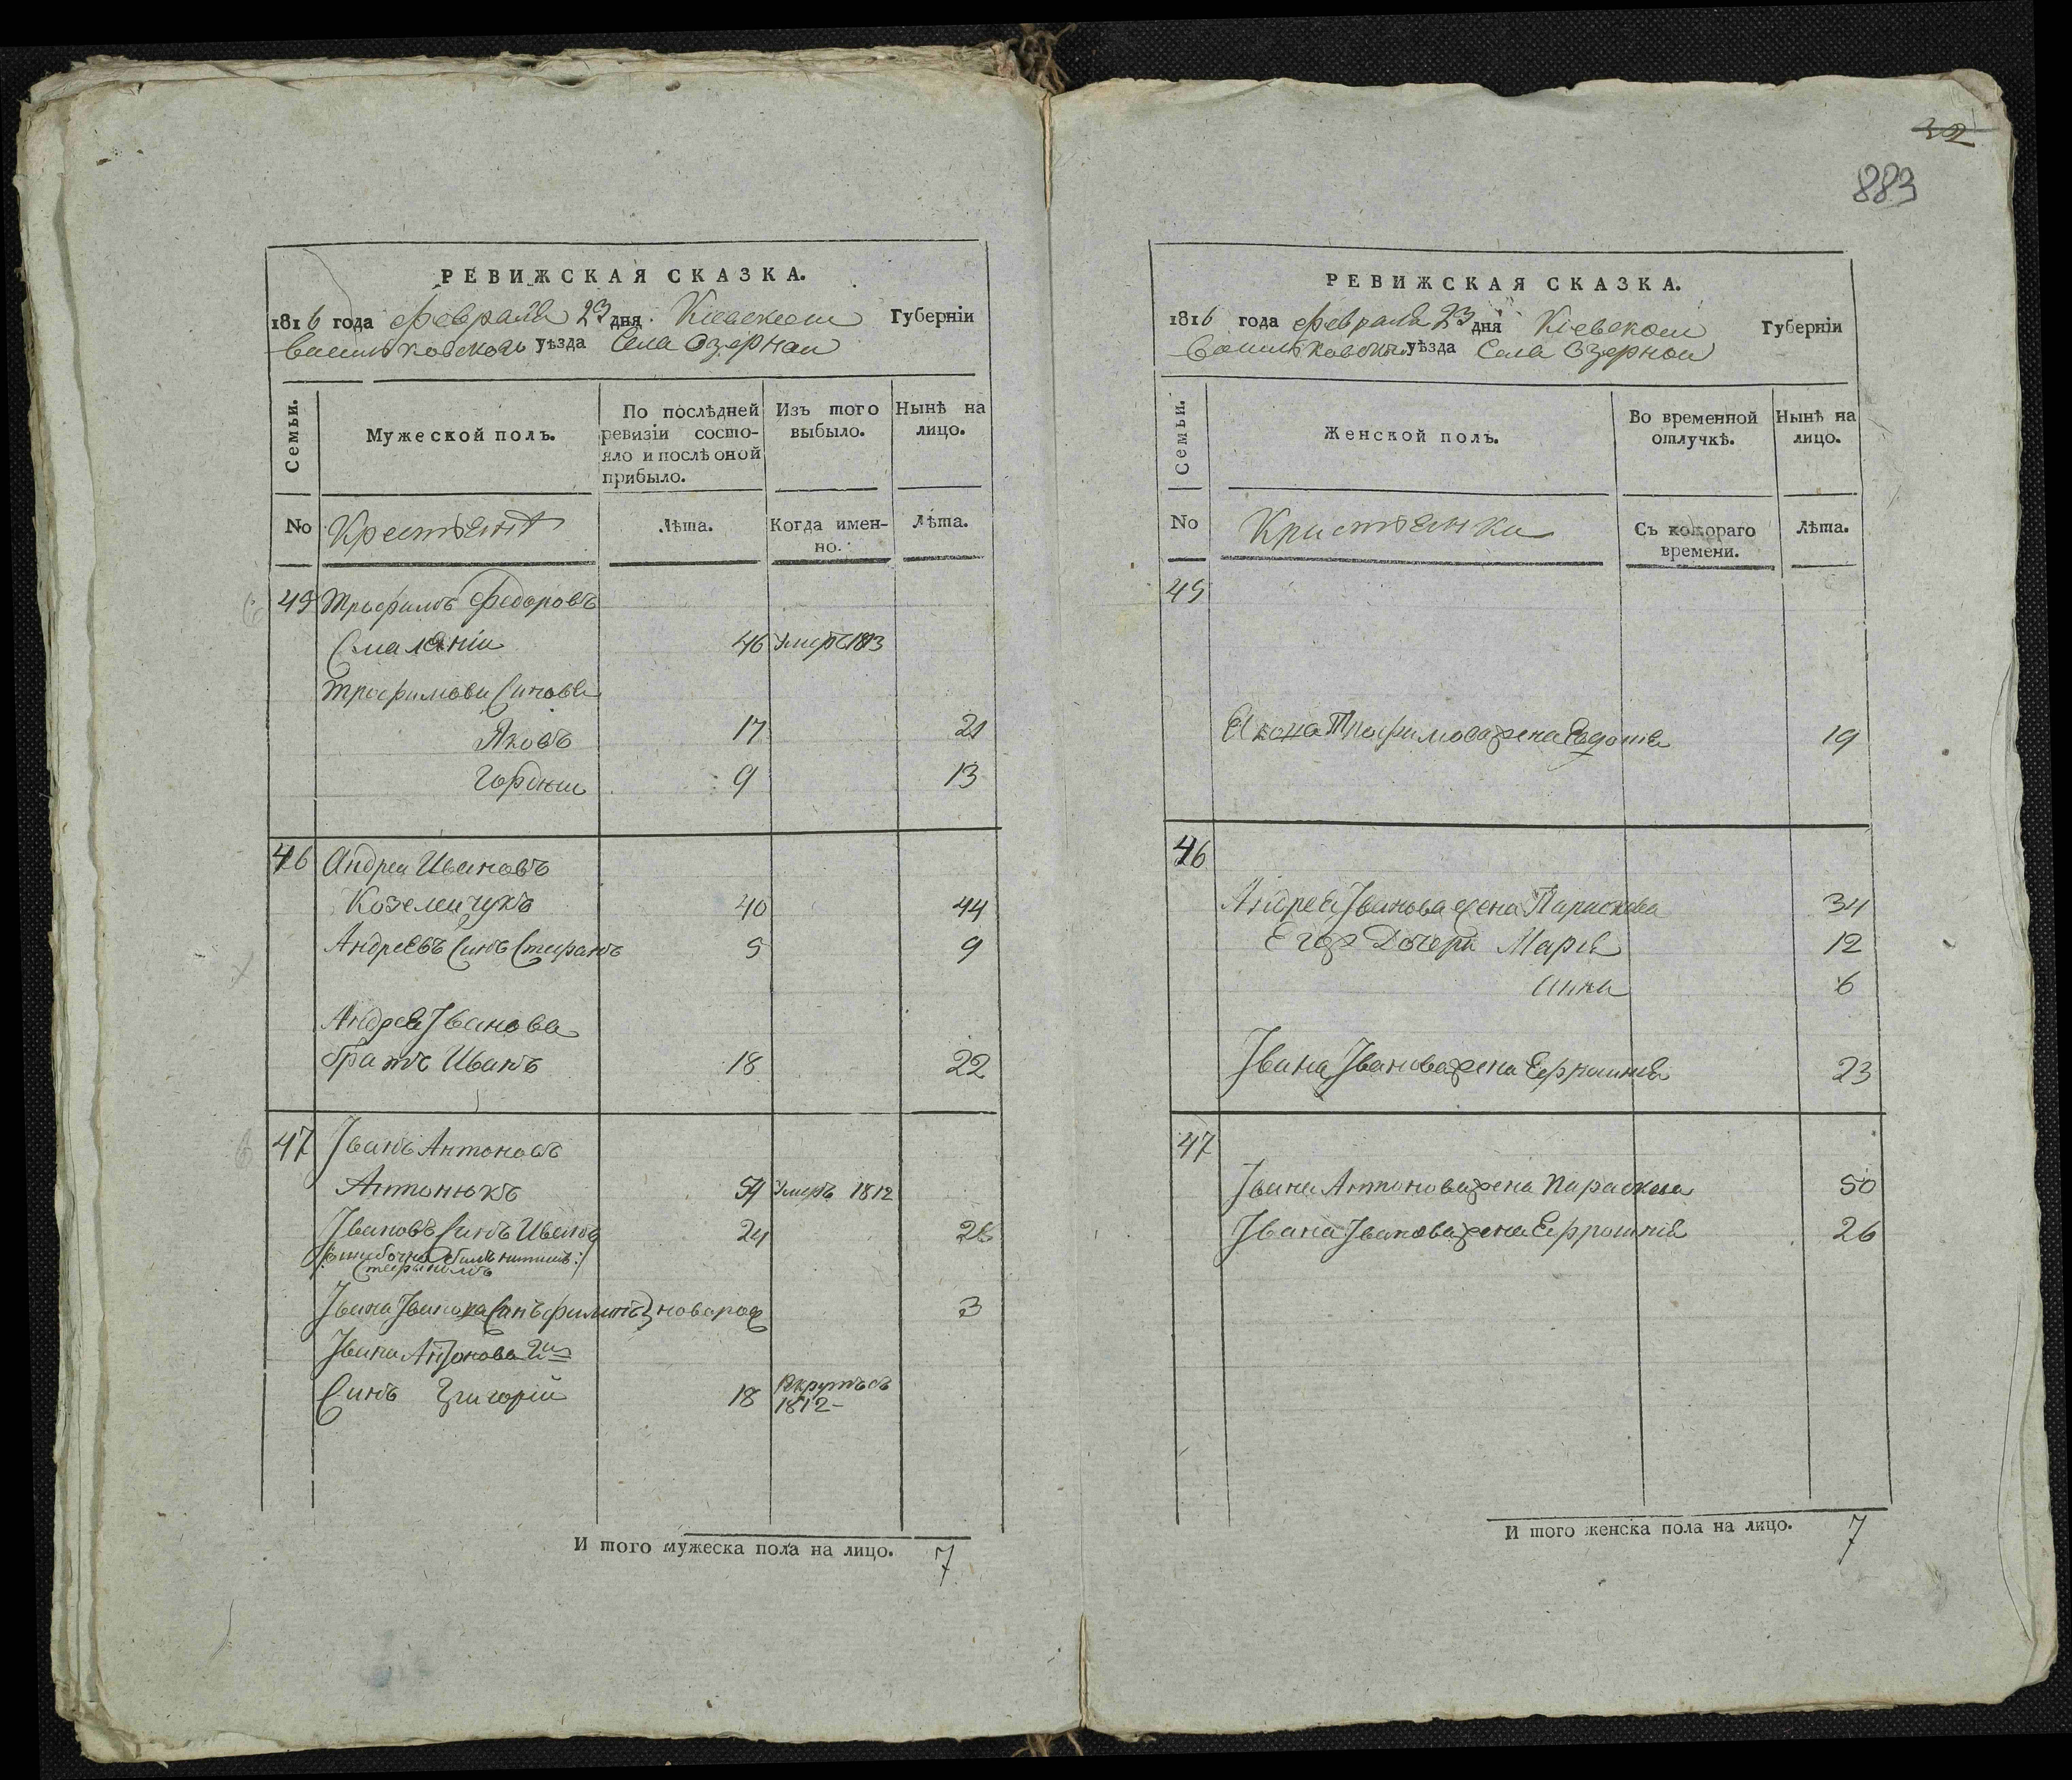 РЕВИЖСКАЯ СКАЗКА.
1816 года Февраля 23 дня Кіевской Губерніи
Васильковского уѣзда Села Озерной
Семьи.
Мужеской полъ.
По послѣдней ревизіи состо-
яло и послѣ оной
прибыло.
Изъ того
выбыло.
Нынѣ на
лицо.
No
Лѣта.
Когда имен-
но.
Лѣта.
45 Трофимъ Федоровъ
46 Умеръ 1813
Трофимови Синовья
Яковъ 17 21
Гордѣи 9 13
46 Андреи Ивановъ
Коземчукъ 40 44
Андреевъ Синъ Стефанъ 5 9
Андрея Іванова
братъ Иванъ 18 22
47 Іванъ Антоновъ
Антонюкъ 54 Умеръ 1812
Івановъ Синъ Иванъ 24 28
Івана Іванова Синъ Филипъ новорож 3
Івана Антонова 2й
Синъ Григорій 18 Рекрутъ съ
1812
И того мужеска пола на лицо. 7
32
883
РЕВИЖСКАЯ СКАЗКА.
1816 года Февраля 23 дня Кіевской Губерніи
Васильковского уѣзда Села Озерной
Семьи.
Женской полъ.
Во временной
отлучкѣ.
Нынѣ на
лицо.
No
Съ котораго
времени.
Лѣта.
45
Якова Трофимова жена Евдотія 19
46
Андрея Іванова жена Параскева 34
Его Дочери Марія 12
Анна 6
Івана Іванова жена Ефросинія 23
47
Івана Антонова жена Параскева 50
Івана Іванова жена Ефросинія 26
И того женска пола на лицо. 7